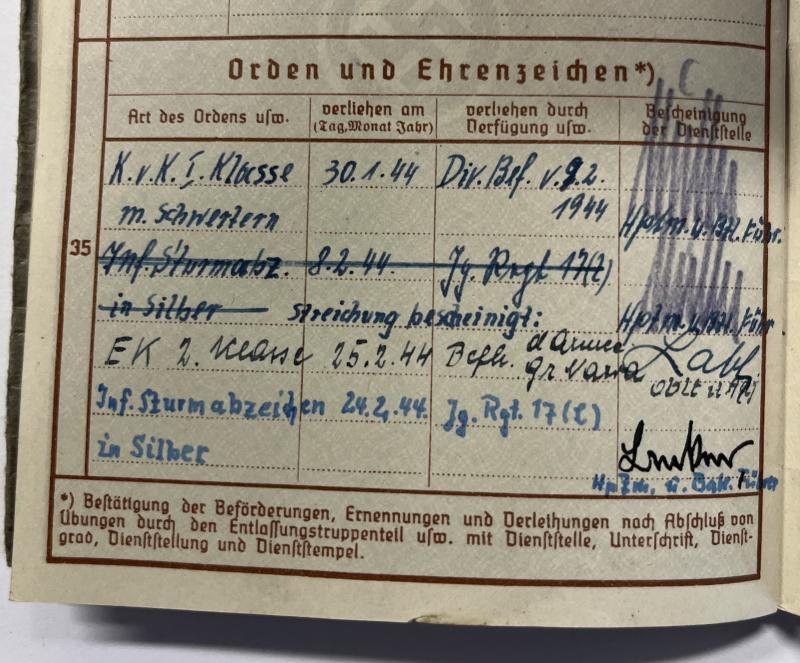 Orden und Ehrenzeichen*)
Art des Ordens usw.
verliehen am
(Tag, Monat Jahr)
verliehen durch
Verfügung usw.
Bescheinigung
der Dienststelle
35
K.v.K. I. Klasse 30.1.44 Div. Bef. v. 9.2.
m. Schwertern 1944 Hptm. u. Btl. Führ.
Inf. Sturmabz. 8.2.44. Jg. Rgt 17(L)
in Silber Streichung bescheinigt: Hptm. u. Btl. Führ.
EK 2. Klasse 25.2.44 Befh. d Armee
Gr Narwa Oblt u
Inf. Sturmabzeichen 24.2.44. Jg. Rgt. 17(L)
in Silber
Hptm. u. Batl. Führer
*) Bestätigung der Beförderungen, Ernennungen und Verleihungen nach Abschluß von
Übungen durch den Entlassungstruppenteil usw. mit Dienststelle, Unterschrift, Dienst-
grad, Dienststellung und Dienststempel.